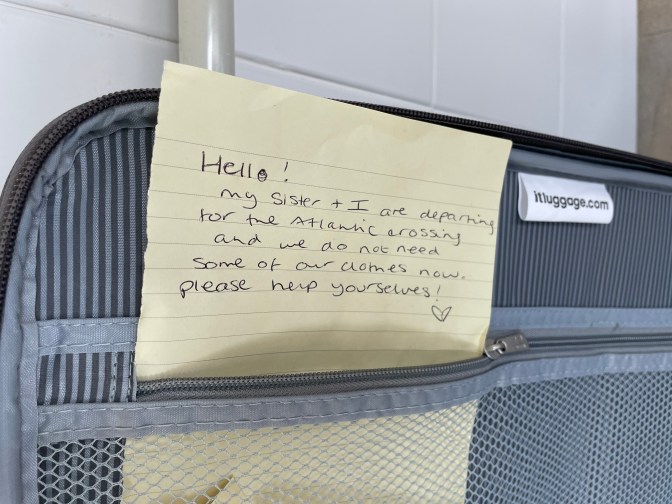 Hello!
my sister + I are departing
for the Atlantic crossing
and we do not need
some of our clothes now.
please help yourselves!
itluggage.com